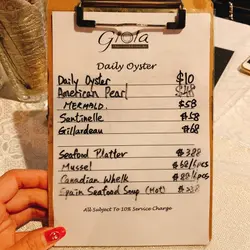 Gioia
Daily Oyster
Daily Oyster $10
American Pearl
MERMAID. $58
Sentinelle $58
Gillardeau $68
Seafood Platter $388
Mussel $68/6pcs
Canadian Whelk
Spain Seafood Soup (Hot)
All Subject To 10% Service Charge